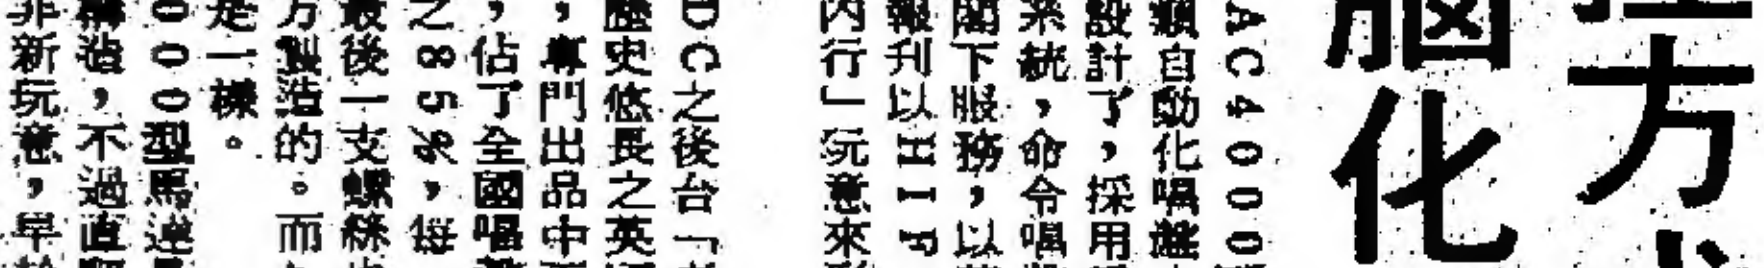 方
腦化
AC4000
類自動化唱
設計了，採用
系統，命令唱
閣下服務，以
報刊以HIF
內行」玩意來
DC之後台「
歷史悠長之英
，專門出品中
，佔了全國唱
之85％，每
最後一支螺絲
方製造的。而
是一樣。
000型馬達
構造，不過直
非新玩意，早